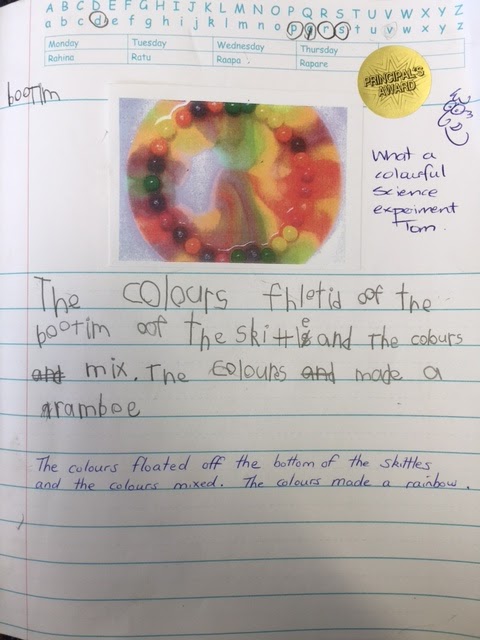 A B C D E F G H I J K L M N O P Q R S T U V W X Y Z
a b c d e f g h i j k l m n o p q r s t u v w x y z
Monday Tuesday Wednesday Thursday
Rahina Ratu Raapa Rapare
PRINCIPAL'S
AWARD
bootim
What a
colourful
science
expeiment
Tom.
The colours fhletid oof the
bootim oof the skittle and The colours
and mix. The colours and made a
ramboe
The colours floated off the bottom of the skittles
and the colours mixed. The colours made a rainbow.